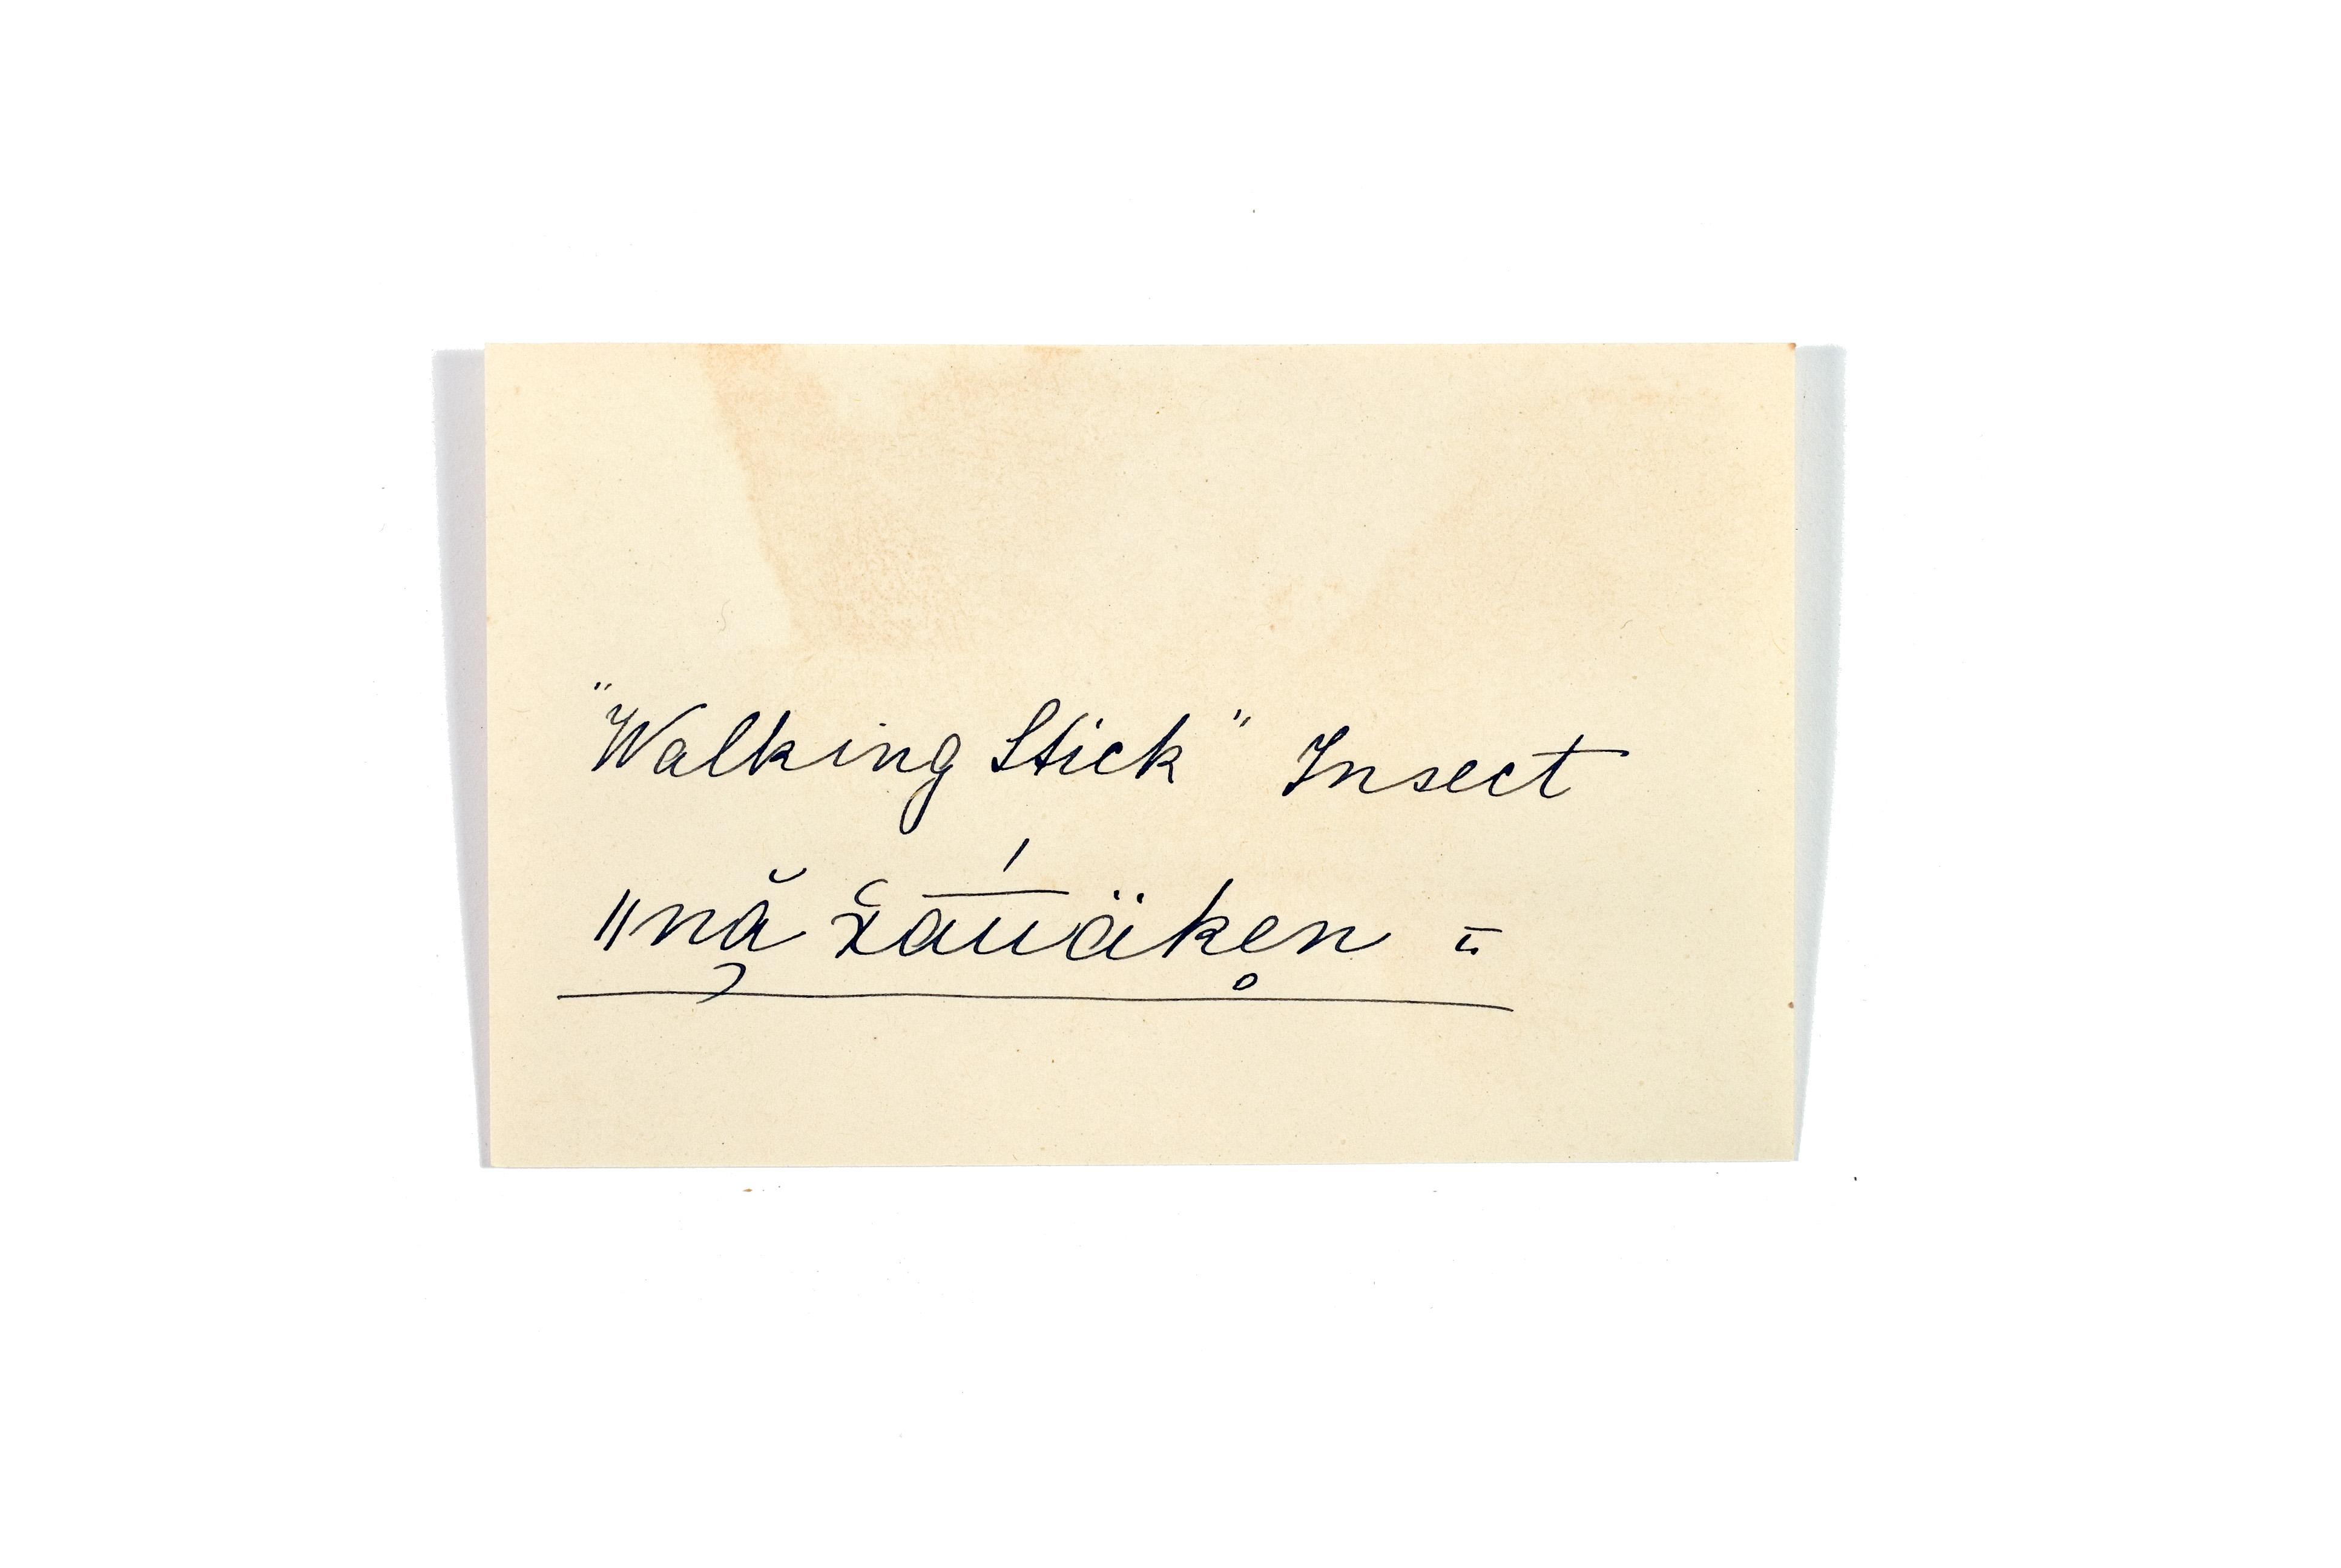 "Walking Stick" Insect
"nă̦ x̯̔a͞u̍äke̥n =